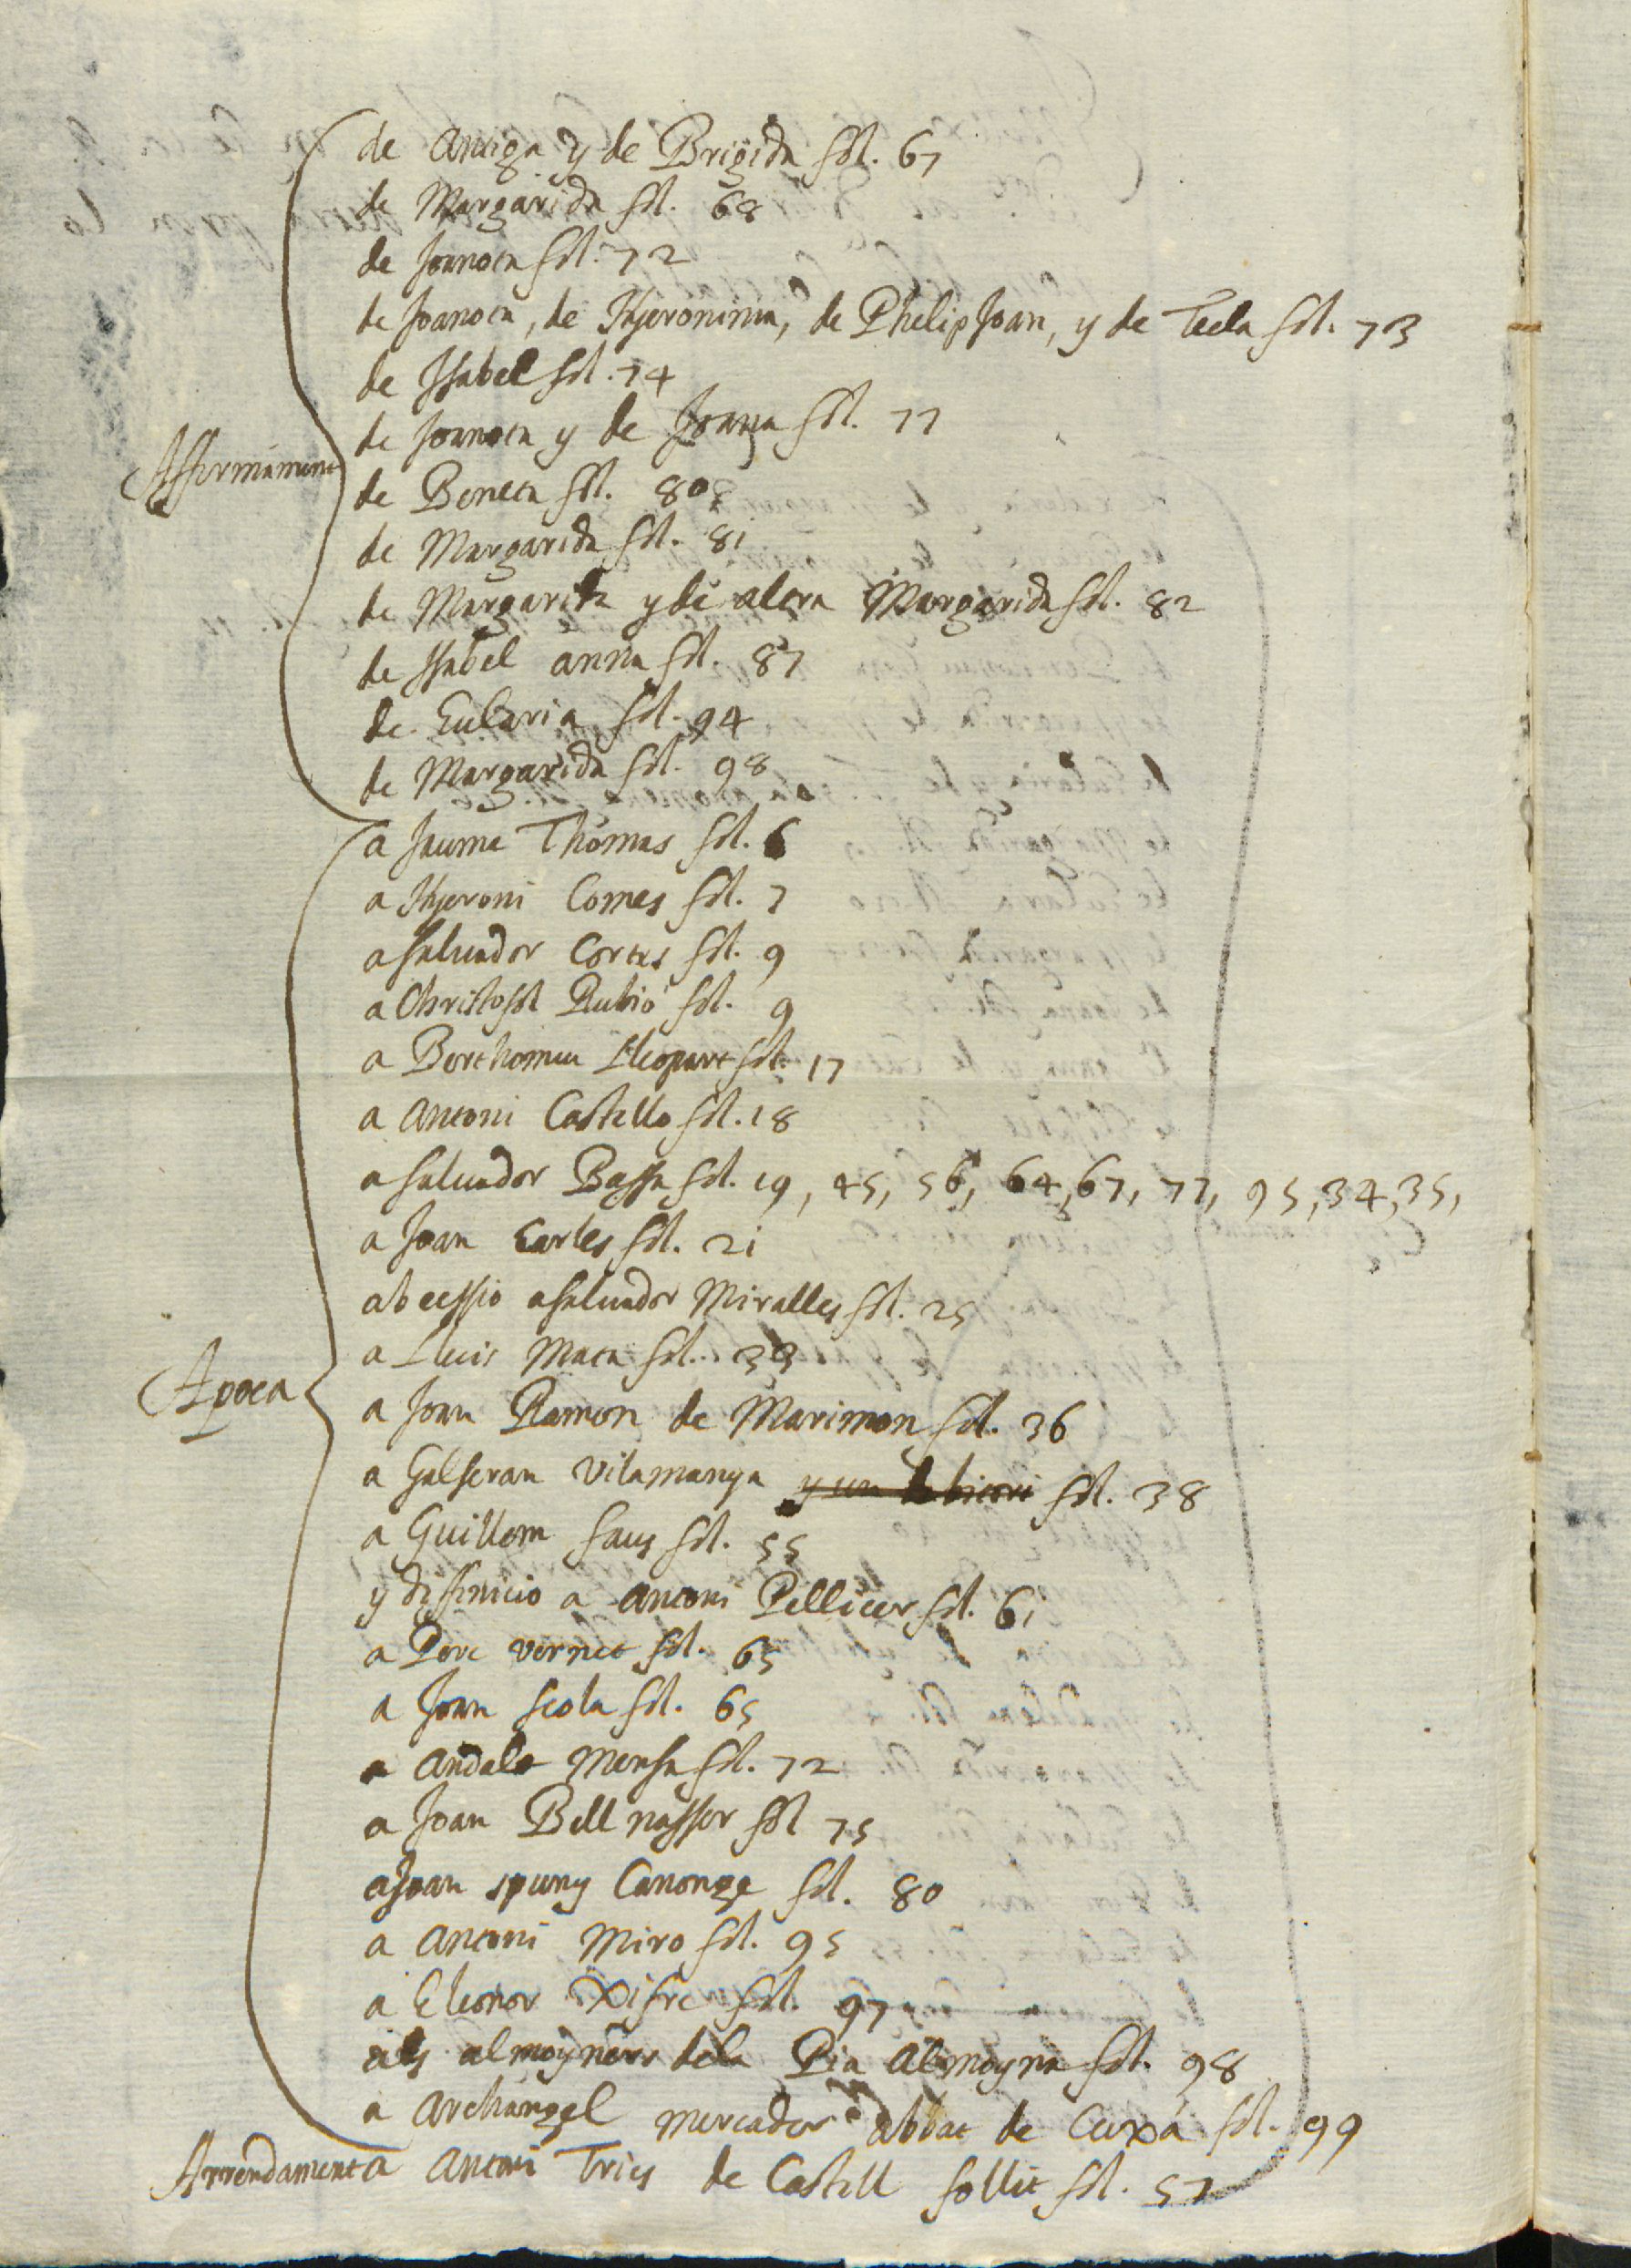 de Antiga y de Brigida fol. 67
de Margarida fol. 68
de Joanota fol. 72
de Joanota, de Hyeronima, de Phelip Joan, y de Tecla fol. 73
de Issabel fol. 74
de Joanota y de Joana fol. 77
Affermament
de Beneta fol. 80
de Margarida fol. 81
de Margarida y de altra Margarida fol. 82
de Issabel anna fol. 87
de Eularia fol. 94
de Margarida fol. 98
a Jaume Thomas fol. 6
a Hyeroni Comes fol. 7
a saluador Cortes fol. 9
a Christofol Rubio fol. 9
a Berthomeu Lleopart fol. 17
a Antoni Castello fol. 18
a saluador Bassa fol. 19, 45, 56, 64, 67, 77, 95, 34, 35,
a Joan Carles fol. 21
ab cessio a saluador Miralles fol. 25
a Lluis Mata fol. 33
Apoca
a Joan Ramon de Marimon fol. 36
a Galseran Vilamanya y un fol. 38
a Guillem saus fol. 55
y diffinicio a Antoni Pellicer fol. 61
a Pere vernet fol. 65
a Joan scola fol. 65
a Andal Mensa fol. 72
a Joan Bell nasser fol 75
a Joan spuny Canonge fol. 80
a Antoni Miro fol. 95
a Eleonor Xifre fol. 97
als almoyners dela Pia Almoyna fol. 98
a Archangel mercader abbat de Cuxa fol. 99
Arrendament a Antoni Tries de Castell follit fol. 57